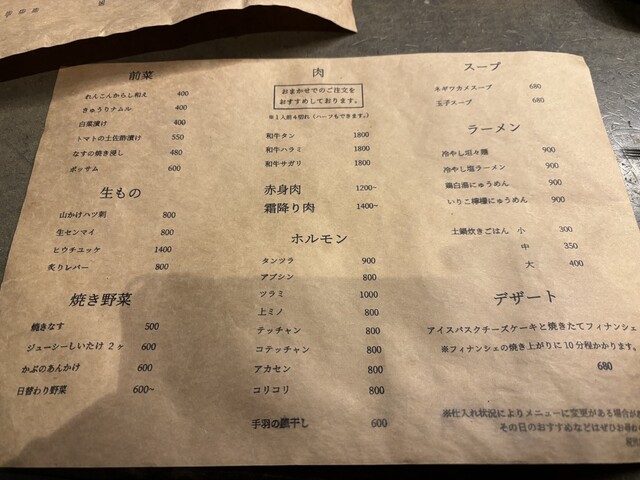 前菜
れんこんからし和え 400
きゅうりナムル 400
白菜漬け 400
トマトの土佐酢漬け 550
なすの焼き浸し 480
ポッサム 600
生もの
山かけハツ刺 800
生センマイ 800
ヒウチユッケ 1400
炙りレバー 800
焼き野菜
焼きなす 500
ジューシーしいたけ 2ヶ 600
かぶのあんかけ 600
日替わり野菜 600~
肉
おまかせでのご注文を
おすすめしております。
※1人前4切れ(ハーフもできます。)
和牛タン 1800
和牛ハラミ 1800
和牛サガリ 1800
赤身肉 1200~
霜降り肉 1400~
ホルモン
タンツラ 900
アブシン 800
ツラミ 1000
上ミノ 800
テッチャン 800
コテッチャン 800
アカセン 800
コリコリ 800
手羽の黒干し 600
スープ
ネギワカメスープ 680
玉子スープ 580
ラーメン
冷やし坦々麺 900
冷やし塩ラーメン 900
鶏白湯にゅうめん 900
いりこ檸檬にゅうめん 900
土鍋炊きごはん 小 300
中 350
大 400
デザート
アイスバスクチーズケーキと焼きたてフィナンシェ
※フィナンシェの焼き上がりに10分程かかります。
680
※仕入れ状況によりメニューに変更がある場合が
その日のおすすめなどはぜひお尋